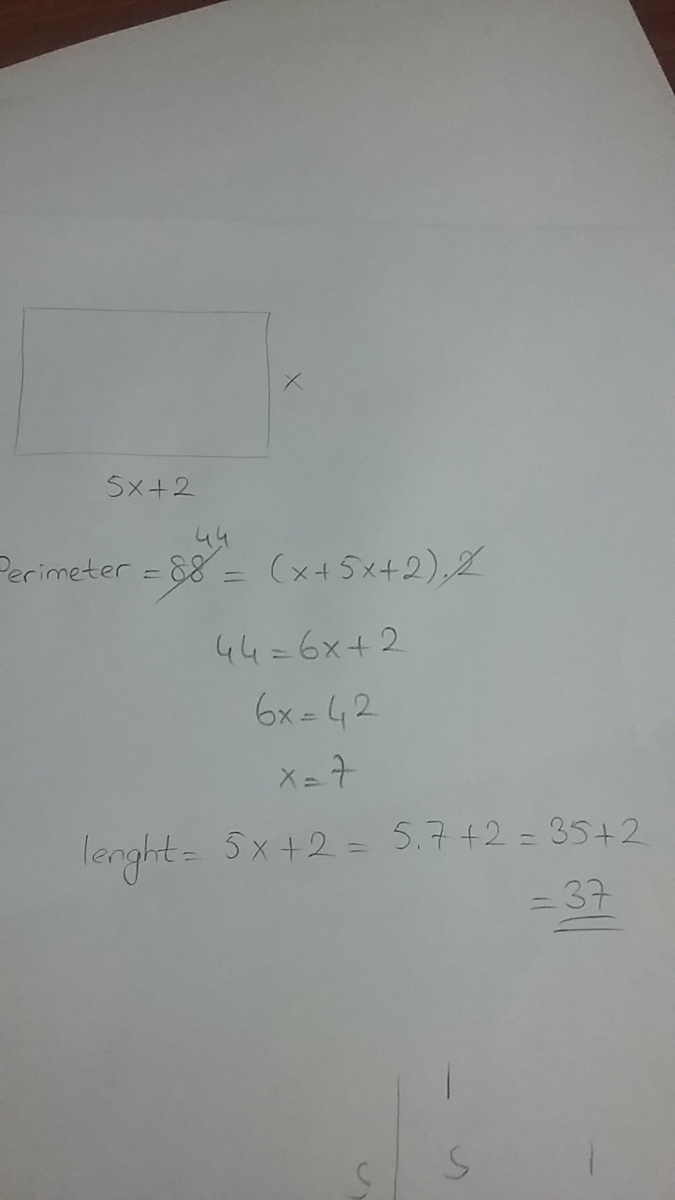 x
5x+2
Perimeter = 88 = (x+5x+2).2
44
44=6x+2
6x=42
x=7
lenght= 5x+2 = 5.7+2 = 35+2
=37